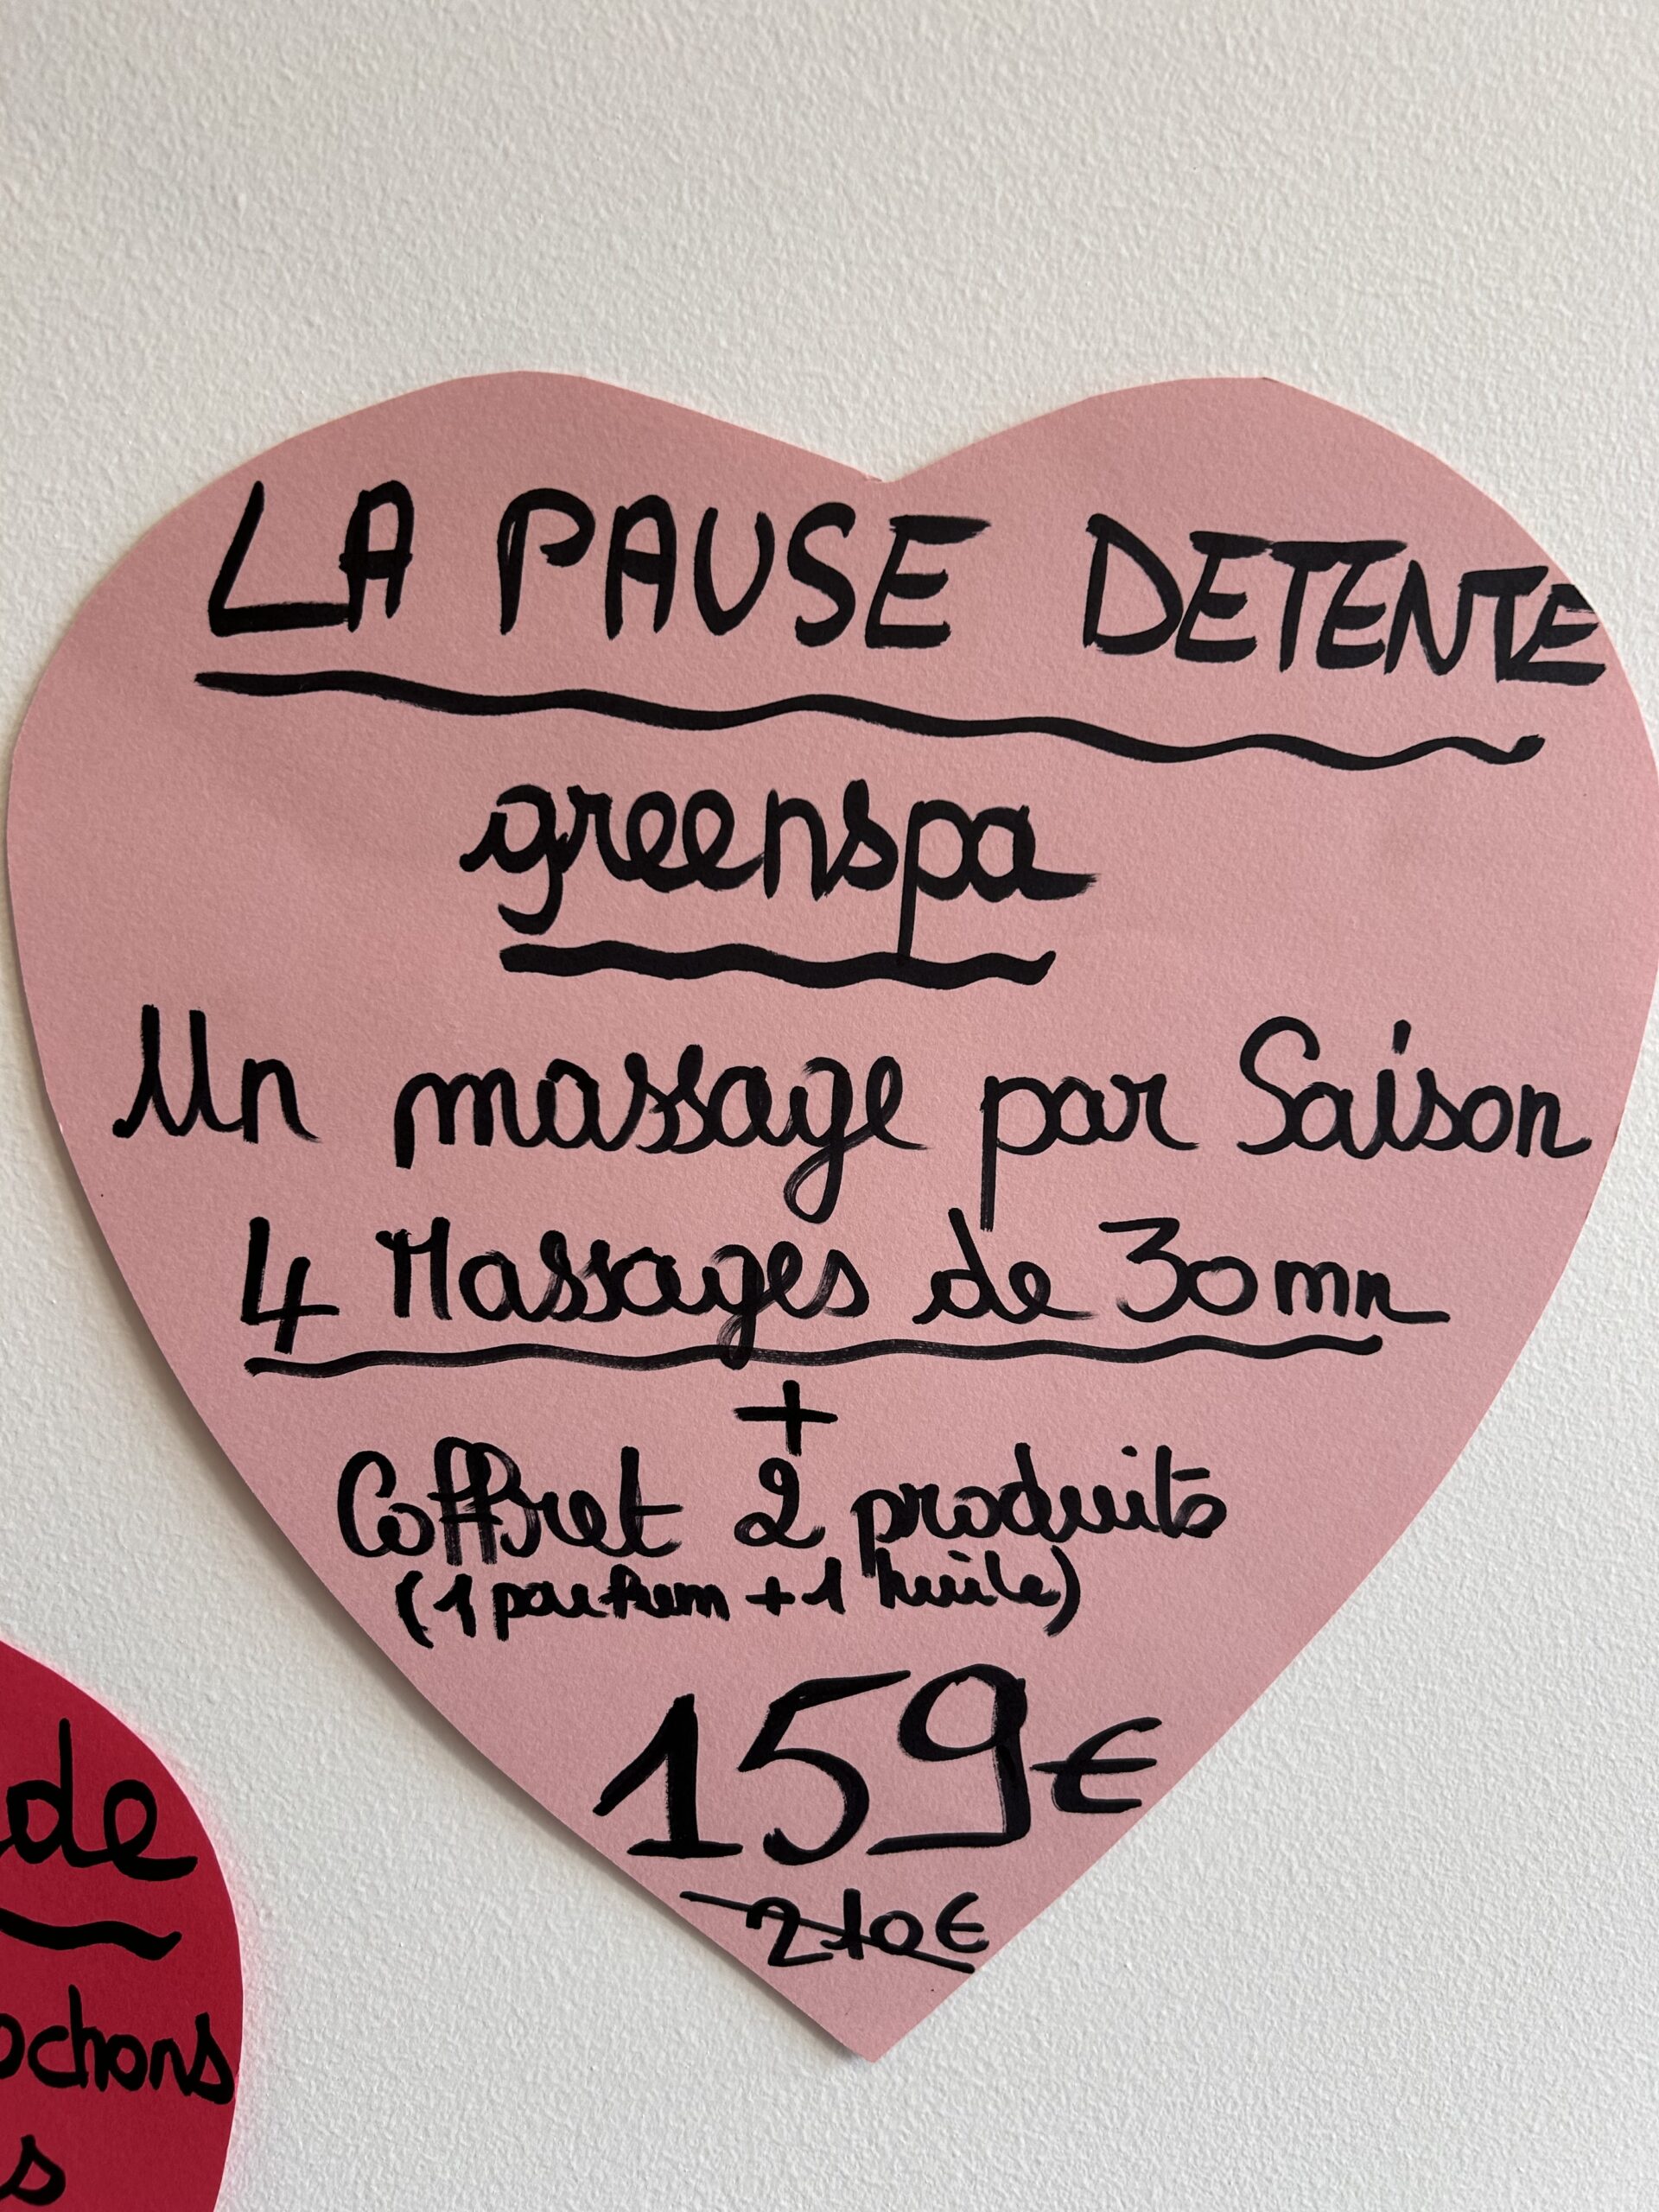 LA PAUSE DETENTE
greenspa
Un massage par Saison
4 Massages de 30mn
+
Coffret 2 produits
(1 parfum + 1 huile)
159€
210€
de
ochons
s